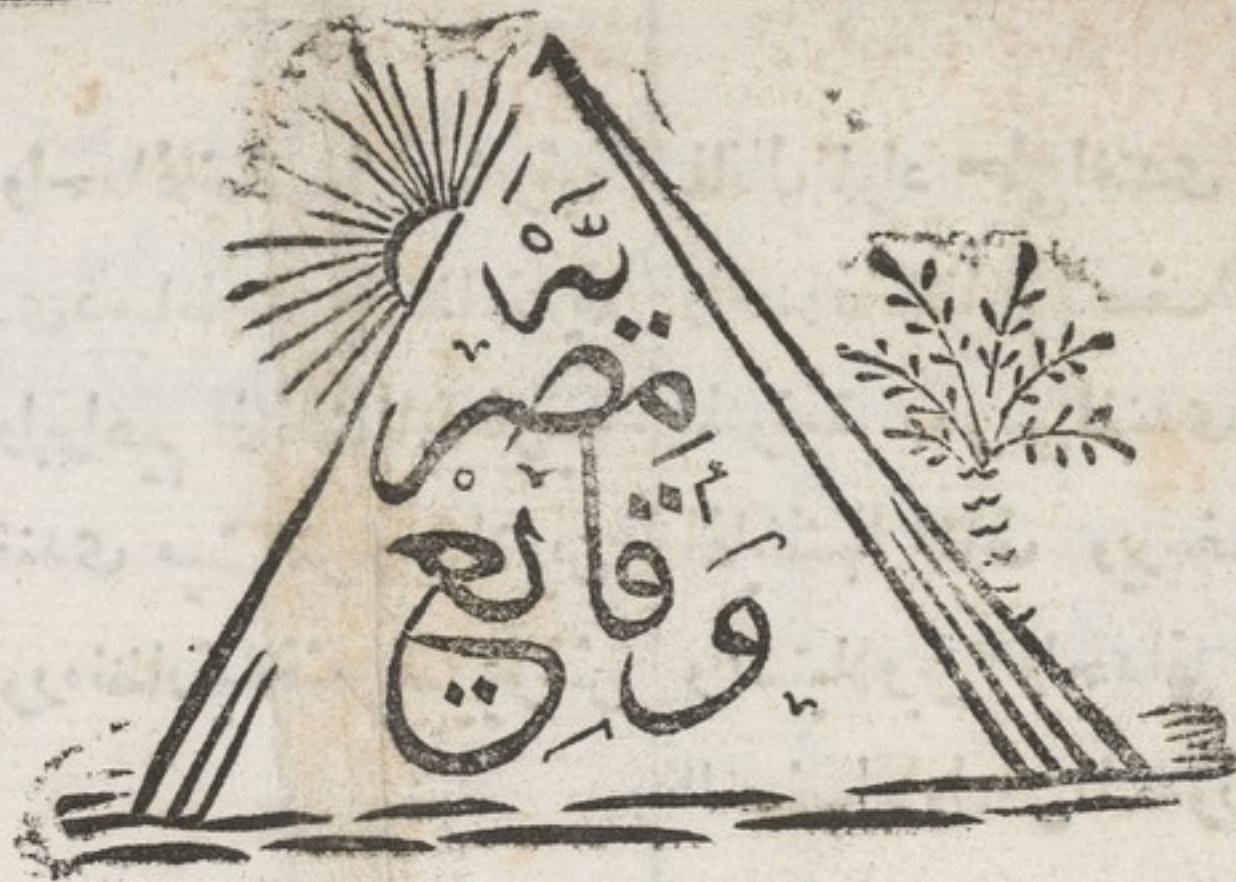 وقايع
مصريّه